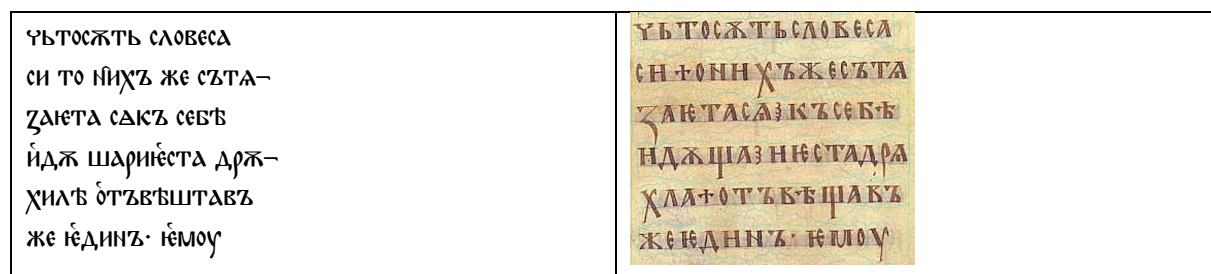 чьтосѫть словеса
си то н҄ихъ же сътѧ¬
ꙁаѥта сꙙкъ себѣ
и҅дѫ шариѥ҅ста дрѫ¬
хилѣ о҅тъвѣштавъ
же ѥ҅динъ· ѥ҅моу
чьтосѫтьсловеса
си+онихъжесътѧ
ꙁаѥтасѧзкъсебѣ
идѫщазиѥстадрѧ
хла+отъвѣщавъ
жеѥдинъ·ѥмоу